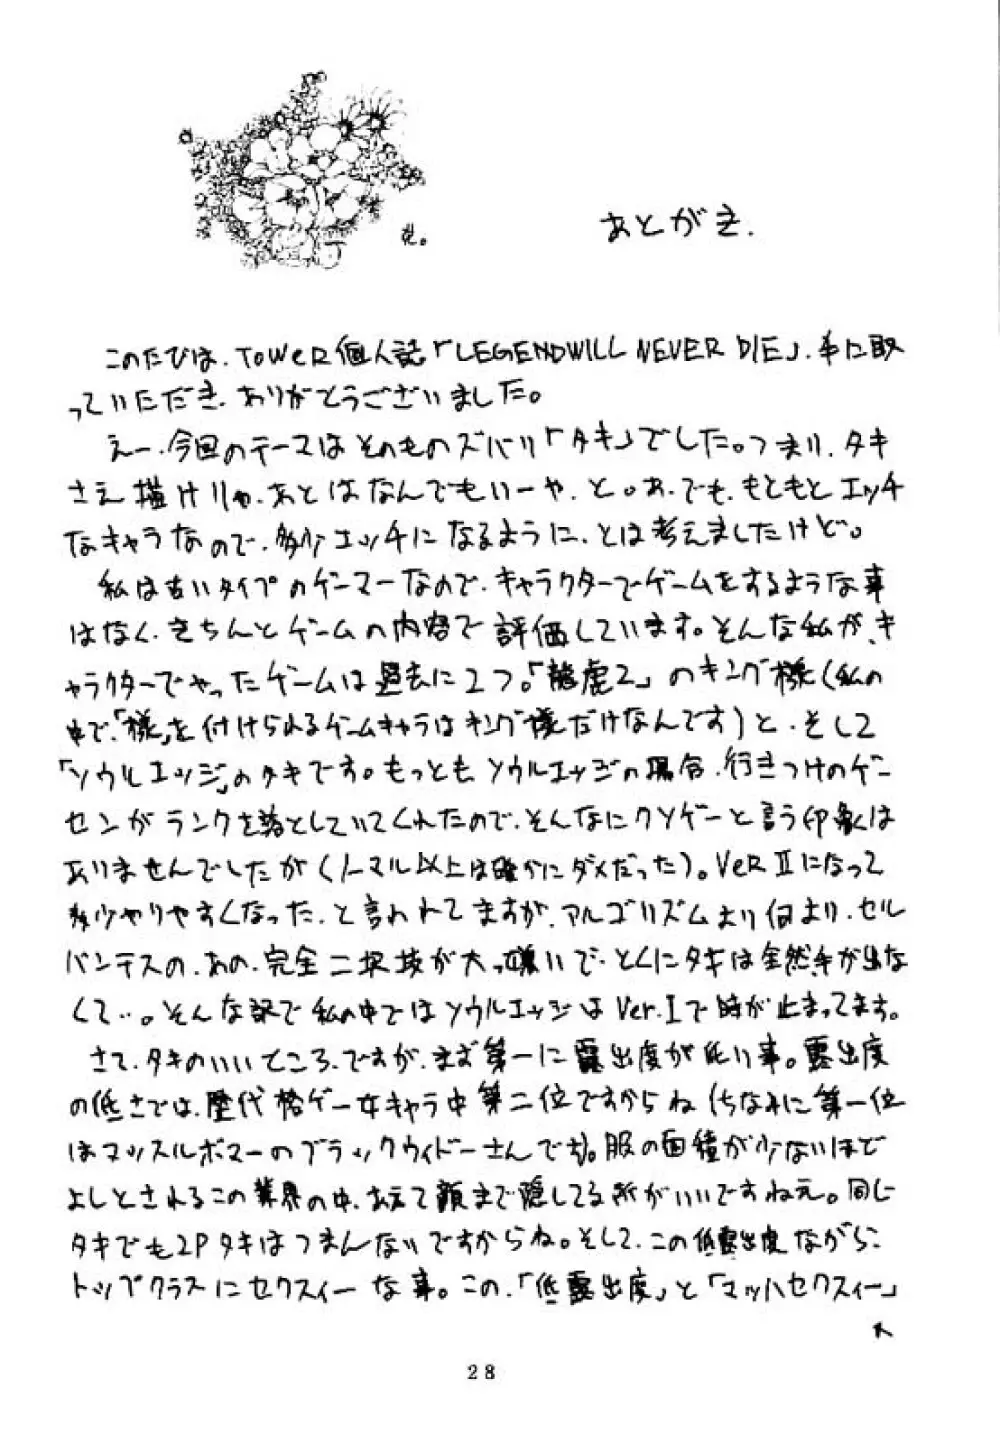 あとがき.
このたびは、TOWER個人誌「LEGEND WILL NEVER DIE」、手に取
っていただき、ありがとうございました。
えー、今回のテーマはそのものズバリ「タキ」でした。つまり、タキ
さえ描けりゃ、あとはなんでもいーや、と。あ、でも、もともとエッチ
なキャラなので、多少エッチになるように、とは考えましたけど。
私は古いタイプのゲーマーなので、キャラクターでゲームをするような事
はなく、きちんとゲームの内容で評価しています。そんな私が、キ
ャラクターでやったゲームは過去に2つ。「龍虎2」のキング様（私の
中で、「様」を付けられるゲームキャラはキング様だけなんです）と、そして
「ソウルエッジ」のタキです。もっとも、ソウルエッジの場合、行きつけのゲー
センがランクを落としていてくれたので、そんなにクソゲーと言う印象は
ありませんでしたが（ノーマル以上は確かにダメだった）。VER Ⅱになって
多少やりやすくなった、と言われてますが、アルゴリズムより何より、セル
バンテスの、あの、完全二択技が大っ嫌いで、とくにタキは全然手が出な
くて…。そんな訳で私の中ではソウルエッジはVer.Ⅰで時が止まってます。
さて、タキのいいところ、ですが、まず第一に露出度が低い事。露出度
の低さでは、歴代格ゲー女キャラ中第二位ですからね（ちなみに第一位
はマッスルボマーのブラックウィドーさんです）。服の面積が少ないほど
よしとされるこの業界の中、あえて顔まで隠してる所がいいですねえ。同じ
タキでも2Pタキはつまんないですからね。そして、この低露出度ながら、
トップクラスにセクスィーな事。この、「低露出度」と「マッハセクスィー」
28